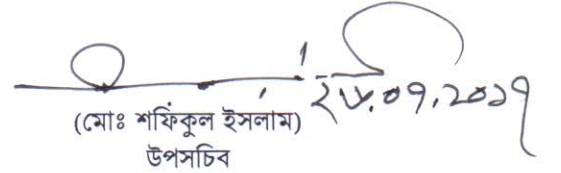 ২৬.০৭.২০১৭
(মোঃ শফিকুল ইসলাম)
উপসচিব